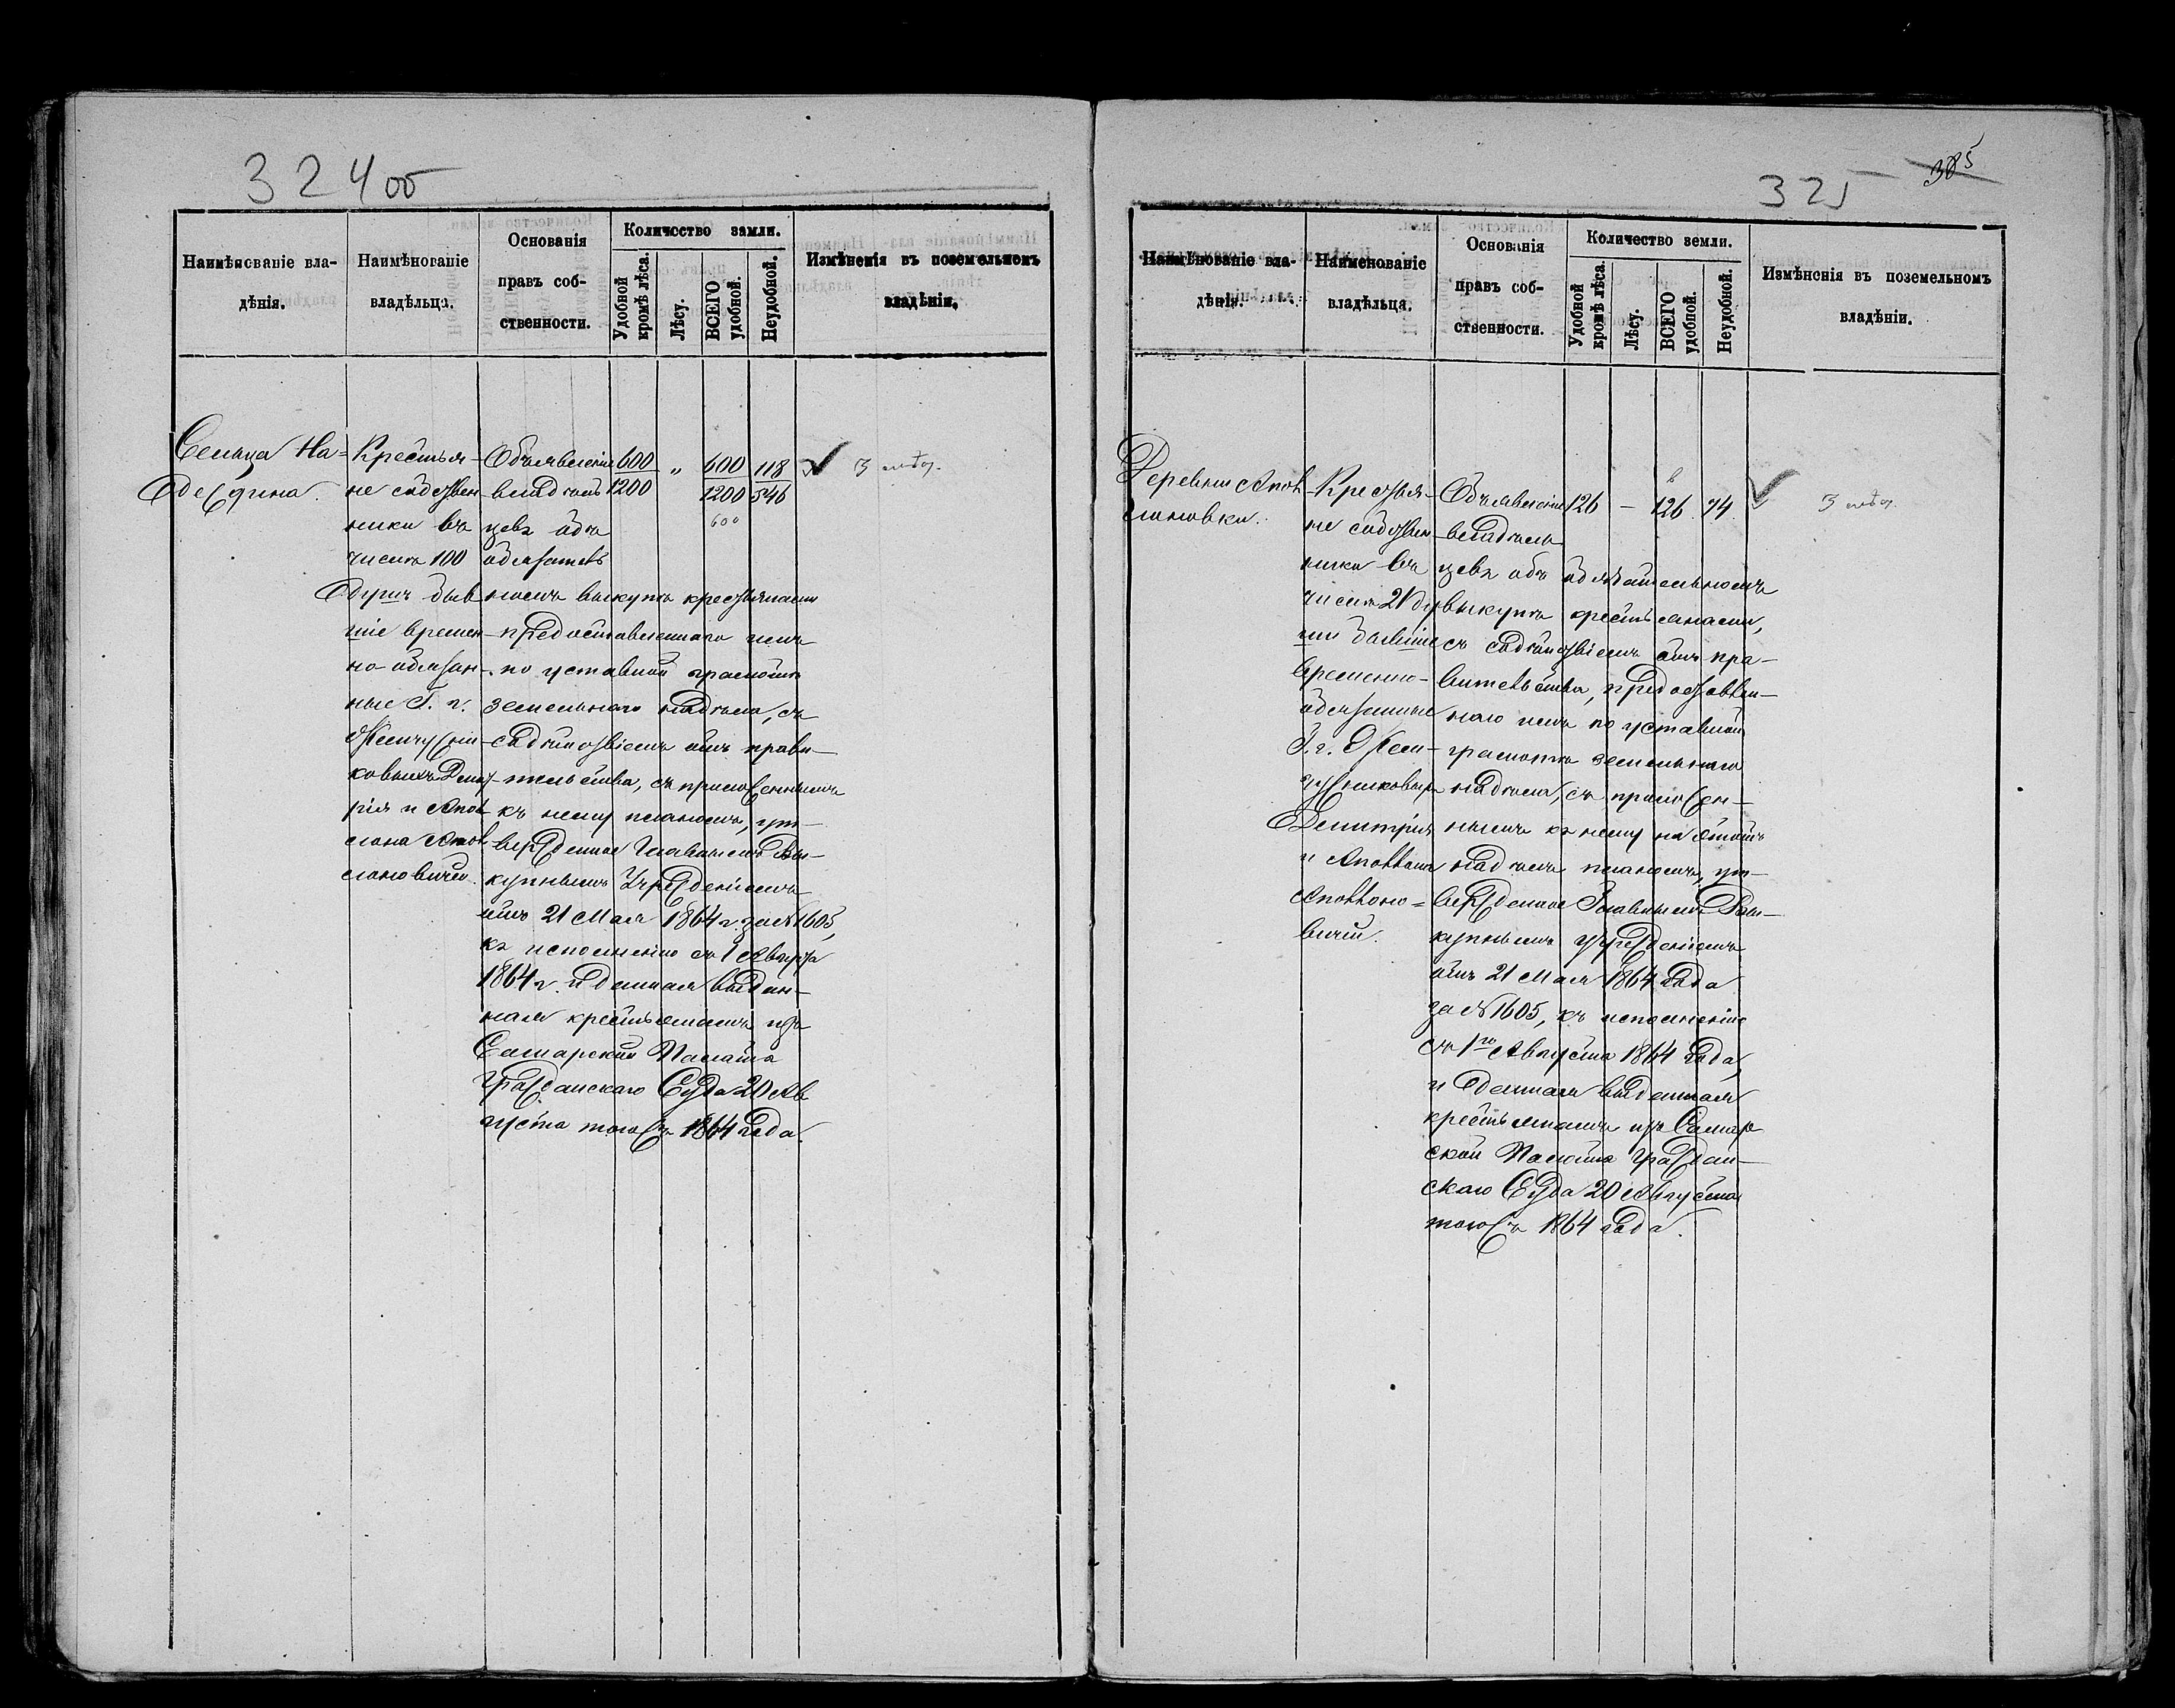 324об
Наимѣнованіе вла-
дѣнія.
Наимѣнованіе
владѣльца.
Основанія
правъ соб-
ственности.
Количество земли.
Удобной
кромѣ лѣса.
Лѣсу.
ВСЕГО
удобной.
Неудобной.
Измѣненія въ поземельномъ
владѣніи.
Сельца На-
дежина.
Крестья-
не собствен
ники въ
числѣ 100
душъ быв
шіе времен
но обязан-
ные Г. г.
Жемчужни-
ковыхъ Димит
рія и Апол
лона Апол-
лоновичей.
Объявленіе
владѣль
цевъ объ
обязатель
номъ выкупѣ крестьянами
предоставленнаго имъ
по уставной грамотѣ
земельнаго надѣла, съ
содѣйствіемъ отъ прави-
тельства, съ приложеннымъ
къ нему планомъ, ут-
вержденное Главнымъ Вы-
купнымъ Учрежденіемъ
отъ 21 Мая 1864 г. за № 1605,
къ исполненію съ 1 Августа
1864 г. и данная выдан-
ная крестьянамъ изъ
Самарской Палаты
Гражданскаго Суда 20 Ав
густа того жъ 1864 года.
600
1200
"
600
1200
600
118
546
325
385
Наимѣнованіе вла-
дѣнія.
Наименованіе
владѣльца.
Основанія
правъ соб-
ственности.
Количество земли.
Удобной
кромѣ лѣса.
Лѣсу.
ВСЕГО
удобной.
Неудобной.
Измѣненія въ поземельномъ
владѣніи.
Деревни Апол
лоновки.
Крестья-
не собствен
ники въ
числѣ 21 ду
ши бывшіе
временно-
обязанные
Г. г. Жем-
чужниковыхъ
Димитрія
и Аполлона
Аполлоно-
вичей.
Объявленіе
владѣль
цевъ объ обязательномъ
выкупѣ крестьянами,
съ содѣйствіемъ отъ пра-
вительства, предоставлен-
наго имъ по уставной
грамотѣ земельнаго
надѣла, съ приложен-
нымъ къ нему на этотъ
надѣлъ планомъ, ут-
вержденное Главнымъ Вы-
купнымъ Учрежденіемъ
отъ 21 Мая 1864 года
за № 1605, къ исполненію
съ 1го Августа 1864 года,
и данная выданная
крестьянамъ изъ Самар
ской Палаты Граждан-
скаго Суда 20 Августа
того жъ 1864 года.
126
—
126
74